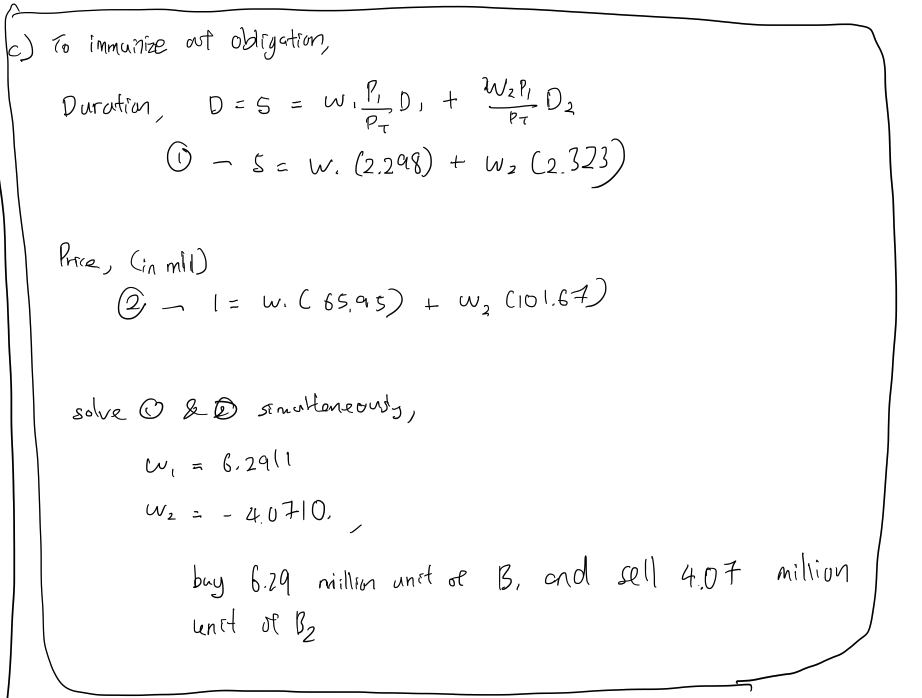 c) To immunize out obligation,
Duration, D = 5 = W₁ P₁/P_T D₁ + W₂P₁/P_T D₂
① - 5 = W₁ (2.298) + W₂ (2.323)
Price, (in mil)
② - 1 = W₁ (65.95) + W₂ (101.67)
solve ① & ② simultaneously,
W₁ = 6.2911
W₂ = - 4.0710.
buy 6.29 million unit of B₁ and sell 4.07 million
unit of B₂